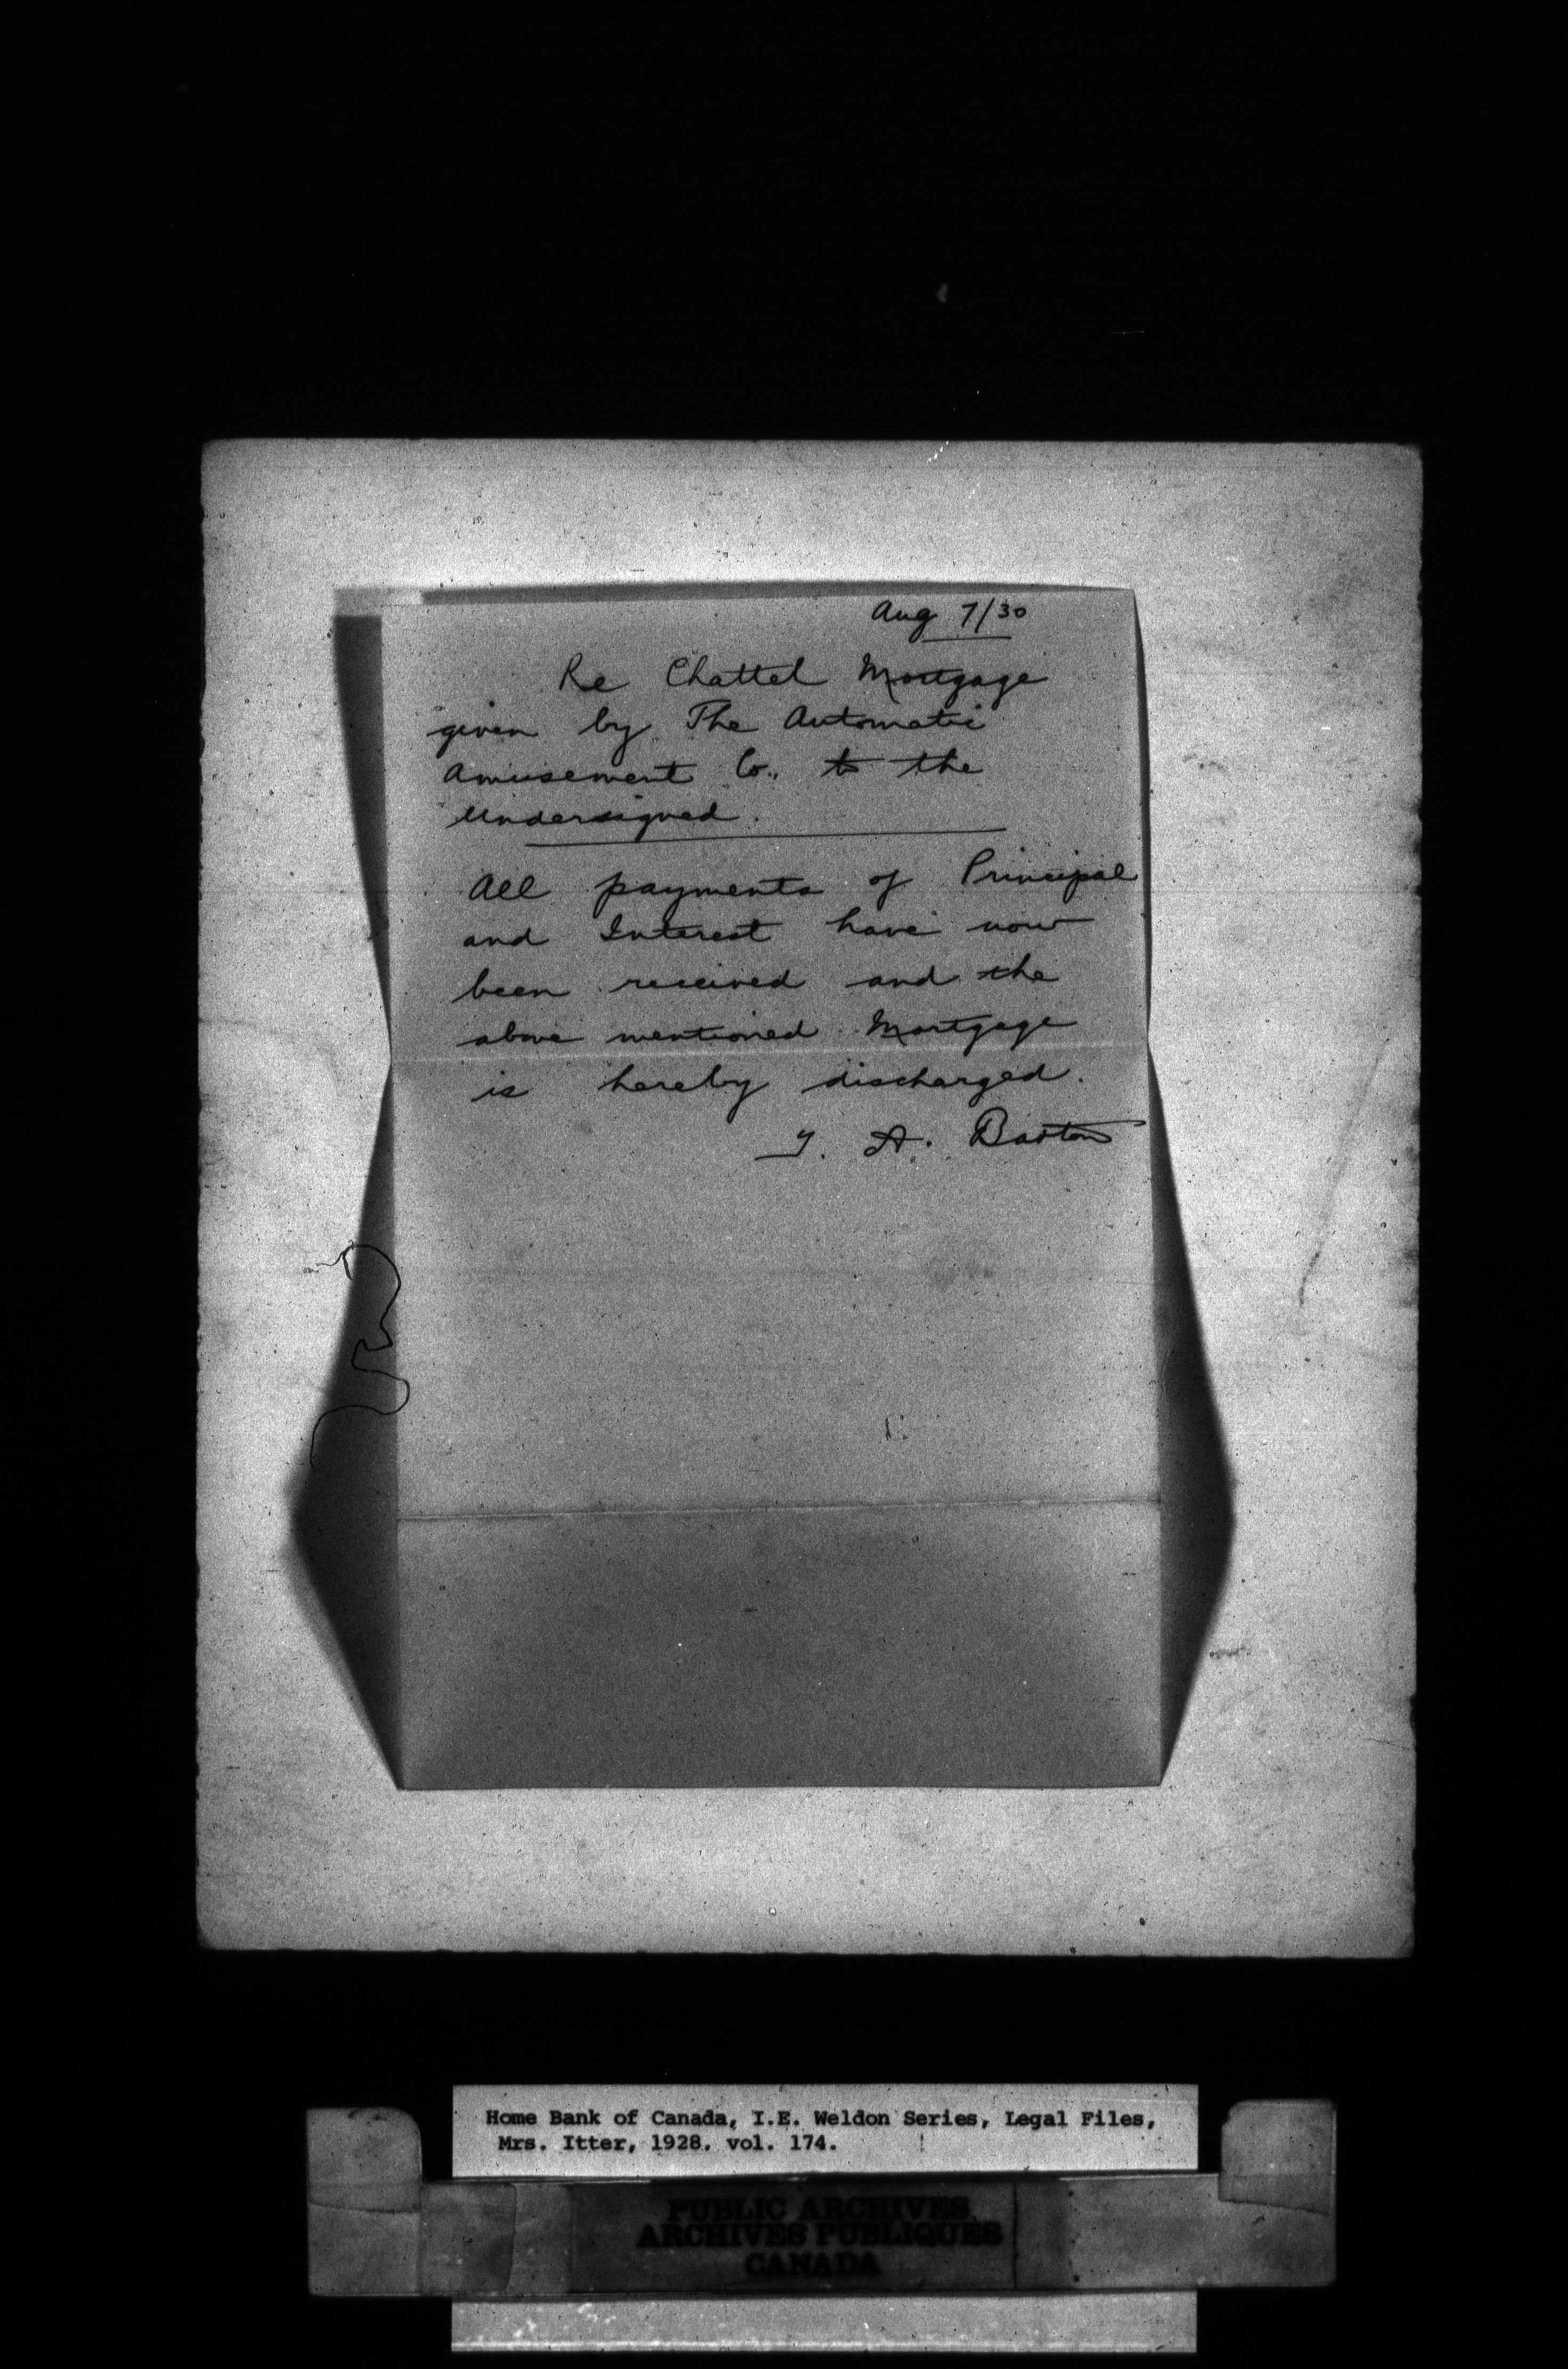 Aug 7/30
Re Chattel Mortgage
given by The Automatic
Amusement Co., to the
Undersigned.
All payments of Principal
and Interest have now
been received and the
above mentioned Mortgage
is hereby discharged.
A.
Home Bank of Canada, I.E. Weldon Series, Legal Files,
Mrs. Itter, 1928. vol. 174.
PUBLIC ARCHIVES
ARCHIVES PUBLIQUES
CANADA